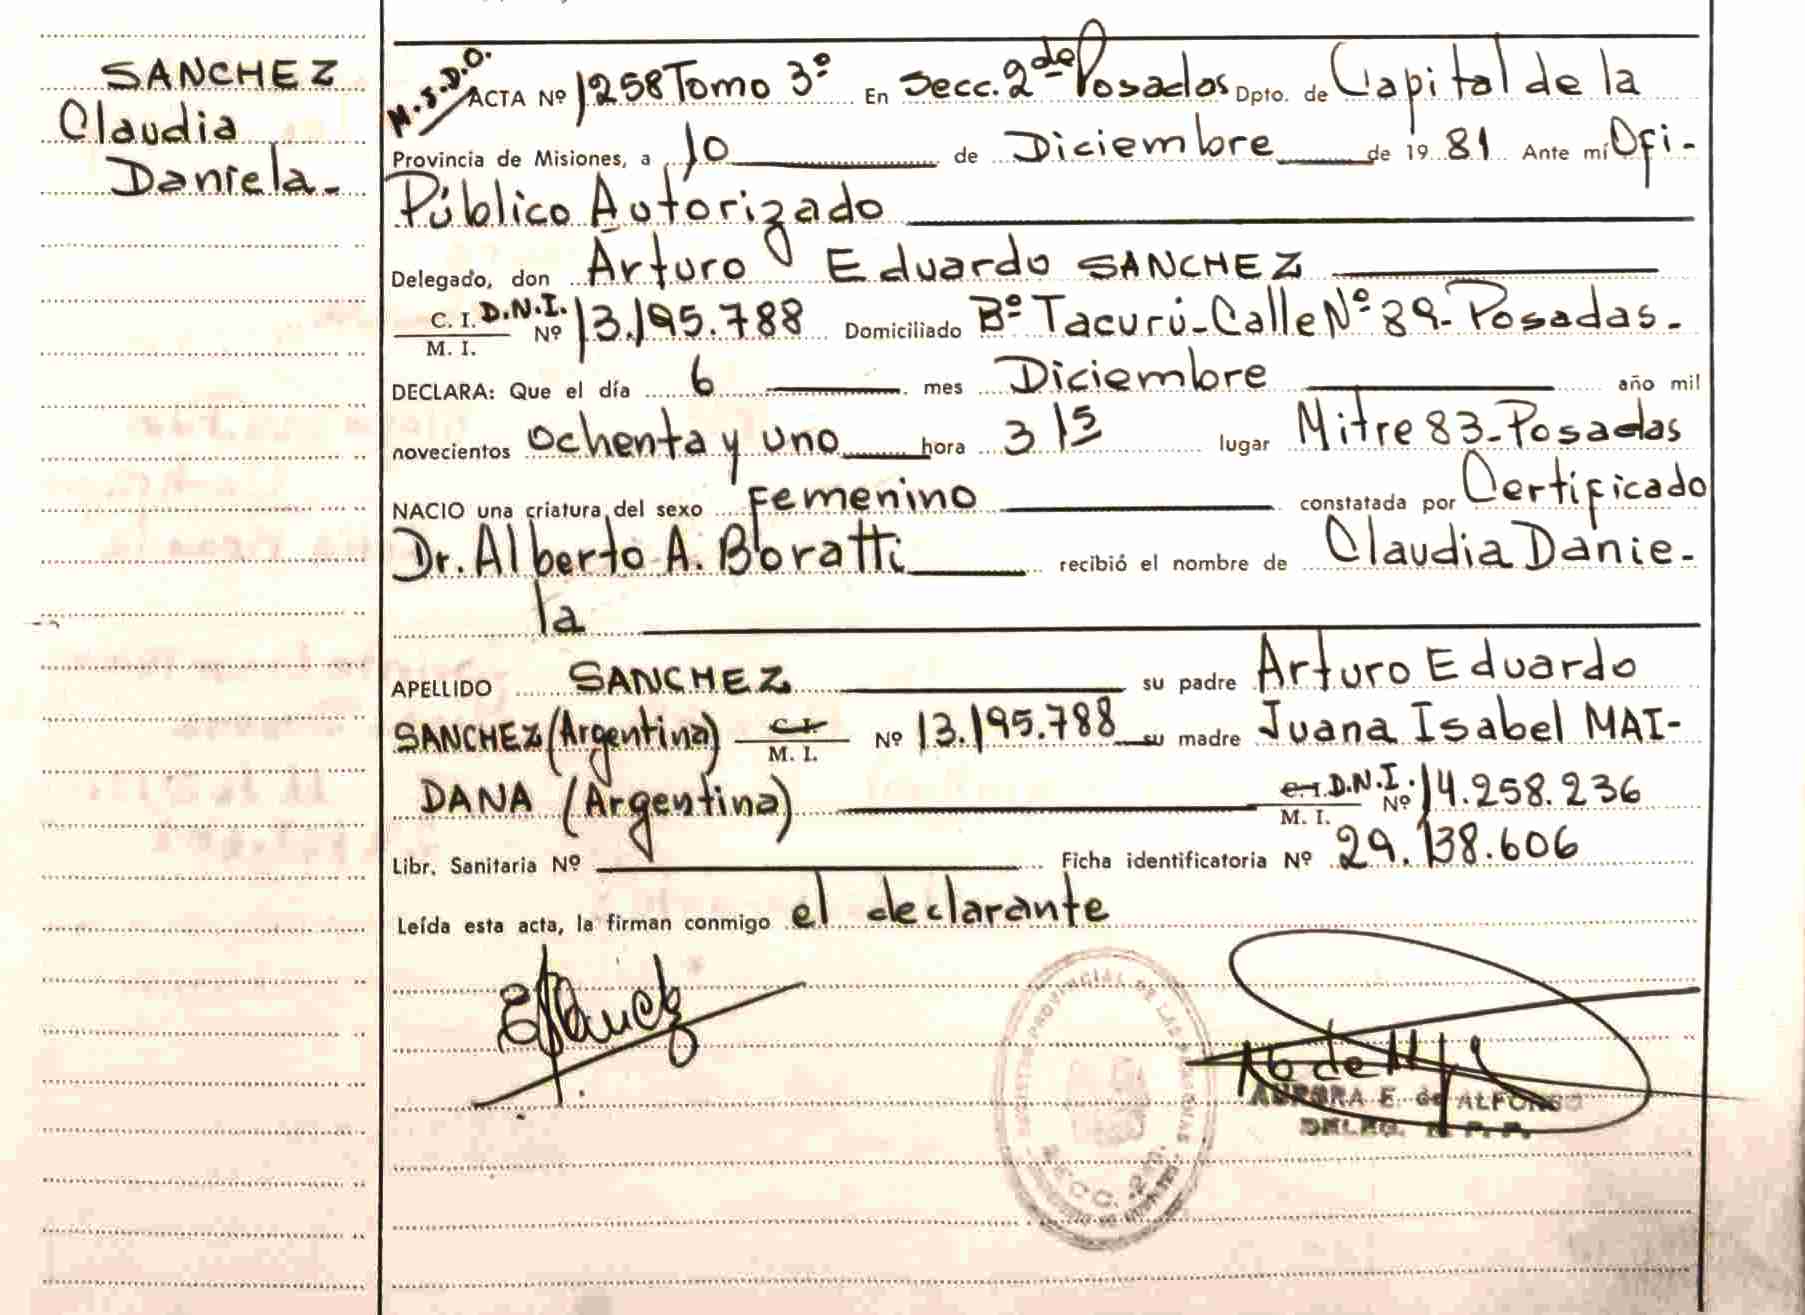 SANCHEZ
Claudia
Daniela-
M.S.D.O.
ACTA Nº 1258 Tomo 3º En Secc. 2da de Posadas Dpto. de Capital de la
Provincia de Misiones, a 10 de Diciembre de 1981 Ante mí Ofi-
Público Autorizado
Delegado, don Arturo Eduardo SANCHEZ
C. I. D.N.I.
M. I. Nº 13.195.788 Domiciliado Bº Tacurú-Calle Nº 89-Posadas.-
DECLARA: Que el día 6 mes Diciembre año mil
novecientos ochenta y uno hora 3 15 lugar Mitre 83-Posadas
NACIO una criatura del sexo Femenino constatada por Certificado
Dr. Alberto A. Boratti recibió el nombre de Claudia Danie-
la
APELLIDO SANCHEZ su padre Arturo Eduardo
SANCHEZ (Argentina) C. I. M. I. Nº 13.195.788 su madre Juana Isabel MAI-
DANA (Argentina) C. I. D.N.I. M. I. Nº 14.258.236
Libr. Sanitaria Nº Ficha identificatoria Nº 29.138.606
Leída esta acta, la firman conmigo el declarante
REGISTRO PROVINCIAL DE LAS PERSONAS
SECC. 2da.
AURORA E. de ALFONSO
DELEG. R. P. P.